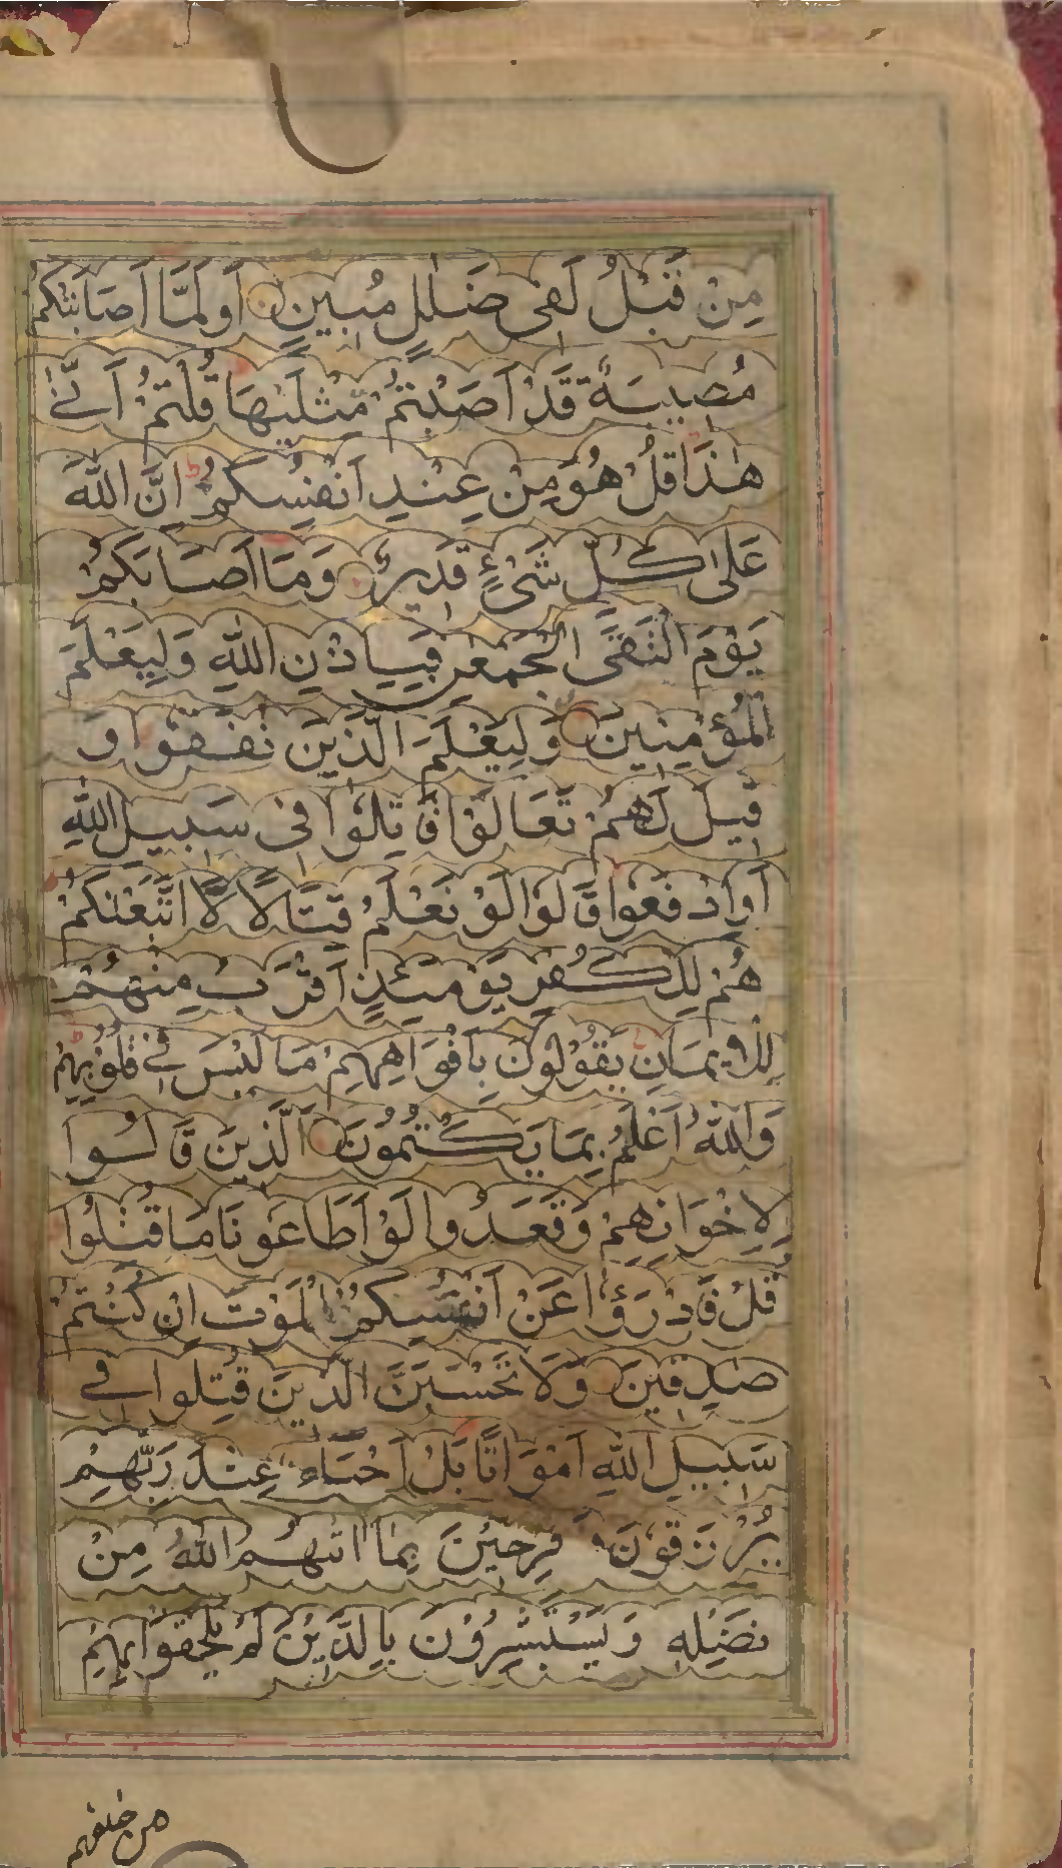 مِنْ قَبْلُ لَفِى ضَلٰلٍ مُبِيْنٍ اَوَلَمَّا اَصَابَتْكُمْ
مُصِيبَةٌ قَدْ اَصَبْتُمْ مِّثْلَيْهَا قُلْتُمْ اَنّٰى
هٰذَا قُلْ هُوَ مِنْ عِنْدِ اَنْفُسِكُمْ ط اِنَّ اللّٰهَ
عَلٰى كُلِّ شَىْءٍ قَدِيرٌ وَمَا اَصَابَكُمْ
يَوْمَ الْتَقَى الْجَمْعٰنِ فَبِاِذْنِ اللّٰهِ وَلِيَعْلَمَ
الْمُؤْمِنِيْنَ وَلِيَعْلَمَ الَّذِيْنَ نَافَقُوْا وَ
قِيلَ لَهُمْ تَعَالَوْا قَاتِلُوْا فِى سَبِيلِ اللّٰهِ
اَوِادْفَعُوْا قَالُوْا لَوْ نَعْلَمُ قِتَالًا لَّا اتَّبَعْنٰكُمْ
هُمْ لِلْكُفْرِ يَوْمَئِذٍ اَقْرَبُ مِنْهُمْ
لِلْاِيمَانِ يَقُوْلُوْنَ بِاَفْوَاهِهِمْ مَا لَيْسَ فِى قُلُوْبِهِمْ ط
وَاللّٰهُ اَعْلَمُ بِمَا يَكْتُمُوْنَ اَلَّذِيْنَ قَالُوْا
لِاِخْوَانِهِمْ وَقَعَدُوا لَوْ اَطَاعُوْنَا مَا قُتِلُوْا
قُلْ فَادْرَؤُا عَنْ اَنْفُسِكُمُ الْمَوْتَ اِنْ كُنْتُمْ
صٰدِقِيْنَ وَلَا تَحْسَبَنَّ الَّذِيْنَ قُتِلُوا فِى
سَبِيلِ اللّٰهِ اَمْوَاتًا بَلْ اَحْيَاءٌ عِنْدَ رَبِّهِمْ
يُرْزَقُوْنَ فَرِحِيْنَ بِمَا اٰتٰهُمُ اللّٰهُ مِنْ
فَضْلِهِ وَيَسْتَبْشِرُوْنَ بِالَّذِيْنَ لَمْ يَلْحَقُوْا بِهِمْ
من خلفهم